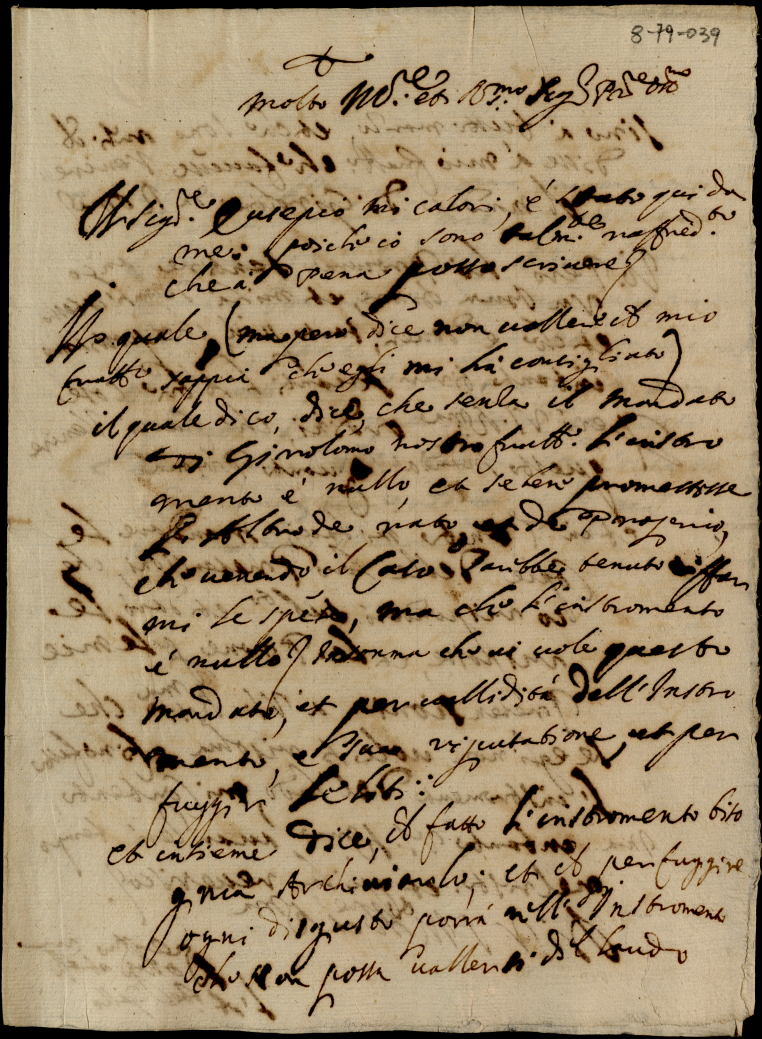 8-79-039
Molto M.re et R.mo Sig.r
Il Sig.re Eusepio Micalori, é stato qui da
me; poiche io sono talm.te raffred.to
che a pena posso scrivere
Il quale, (ma però dice non vallere il mio
fratt.o sappia che egli mi hà consigliato)
il quale dico, dice, che senza il mandato
di Girolomo nostro fratt.o l'instro
mento é nullo, et se bene promettesse
de rato, et de
che venendo il Caso sarebbe tenuto
mi le spese, ma che l'instromento
é nullo, Insonna che ci vole questo
mandato, et per vallidità dell'Instro
mento, e sua riputatione, et per
fuggir le liti:
et insieme dice, fatto l'instromento biso
gnia Archiviarlo; et per fuggire
ogni disgusto porrà nell'Instromento
che non possa vallersi del laudo